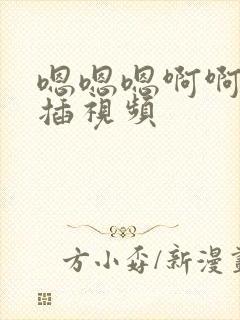 嗯嗯嗯啊啊
插視頻
方小孬/新漫畫